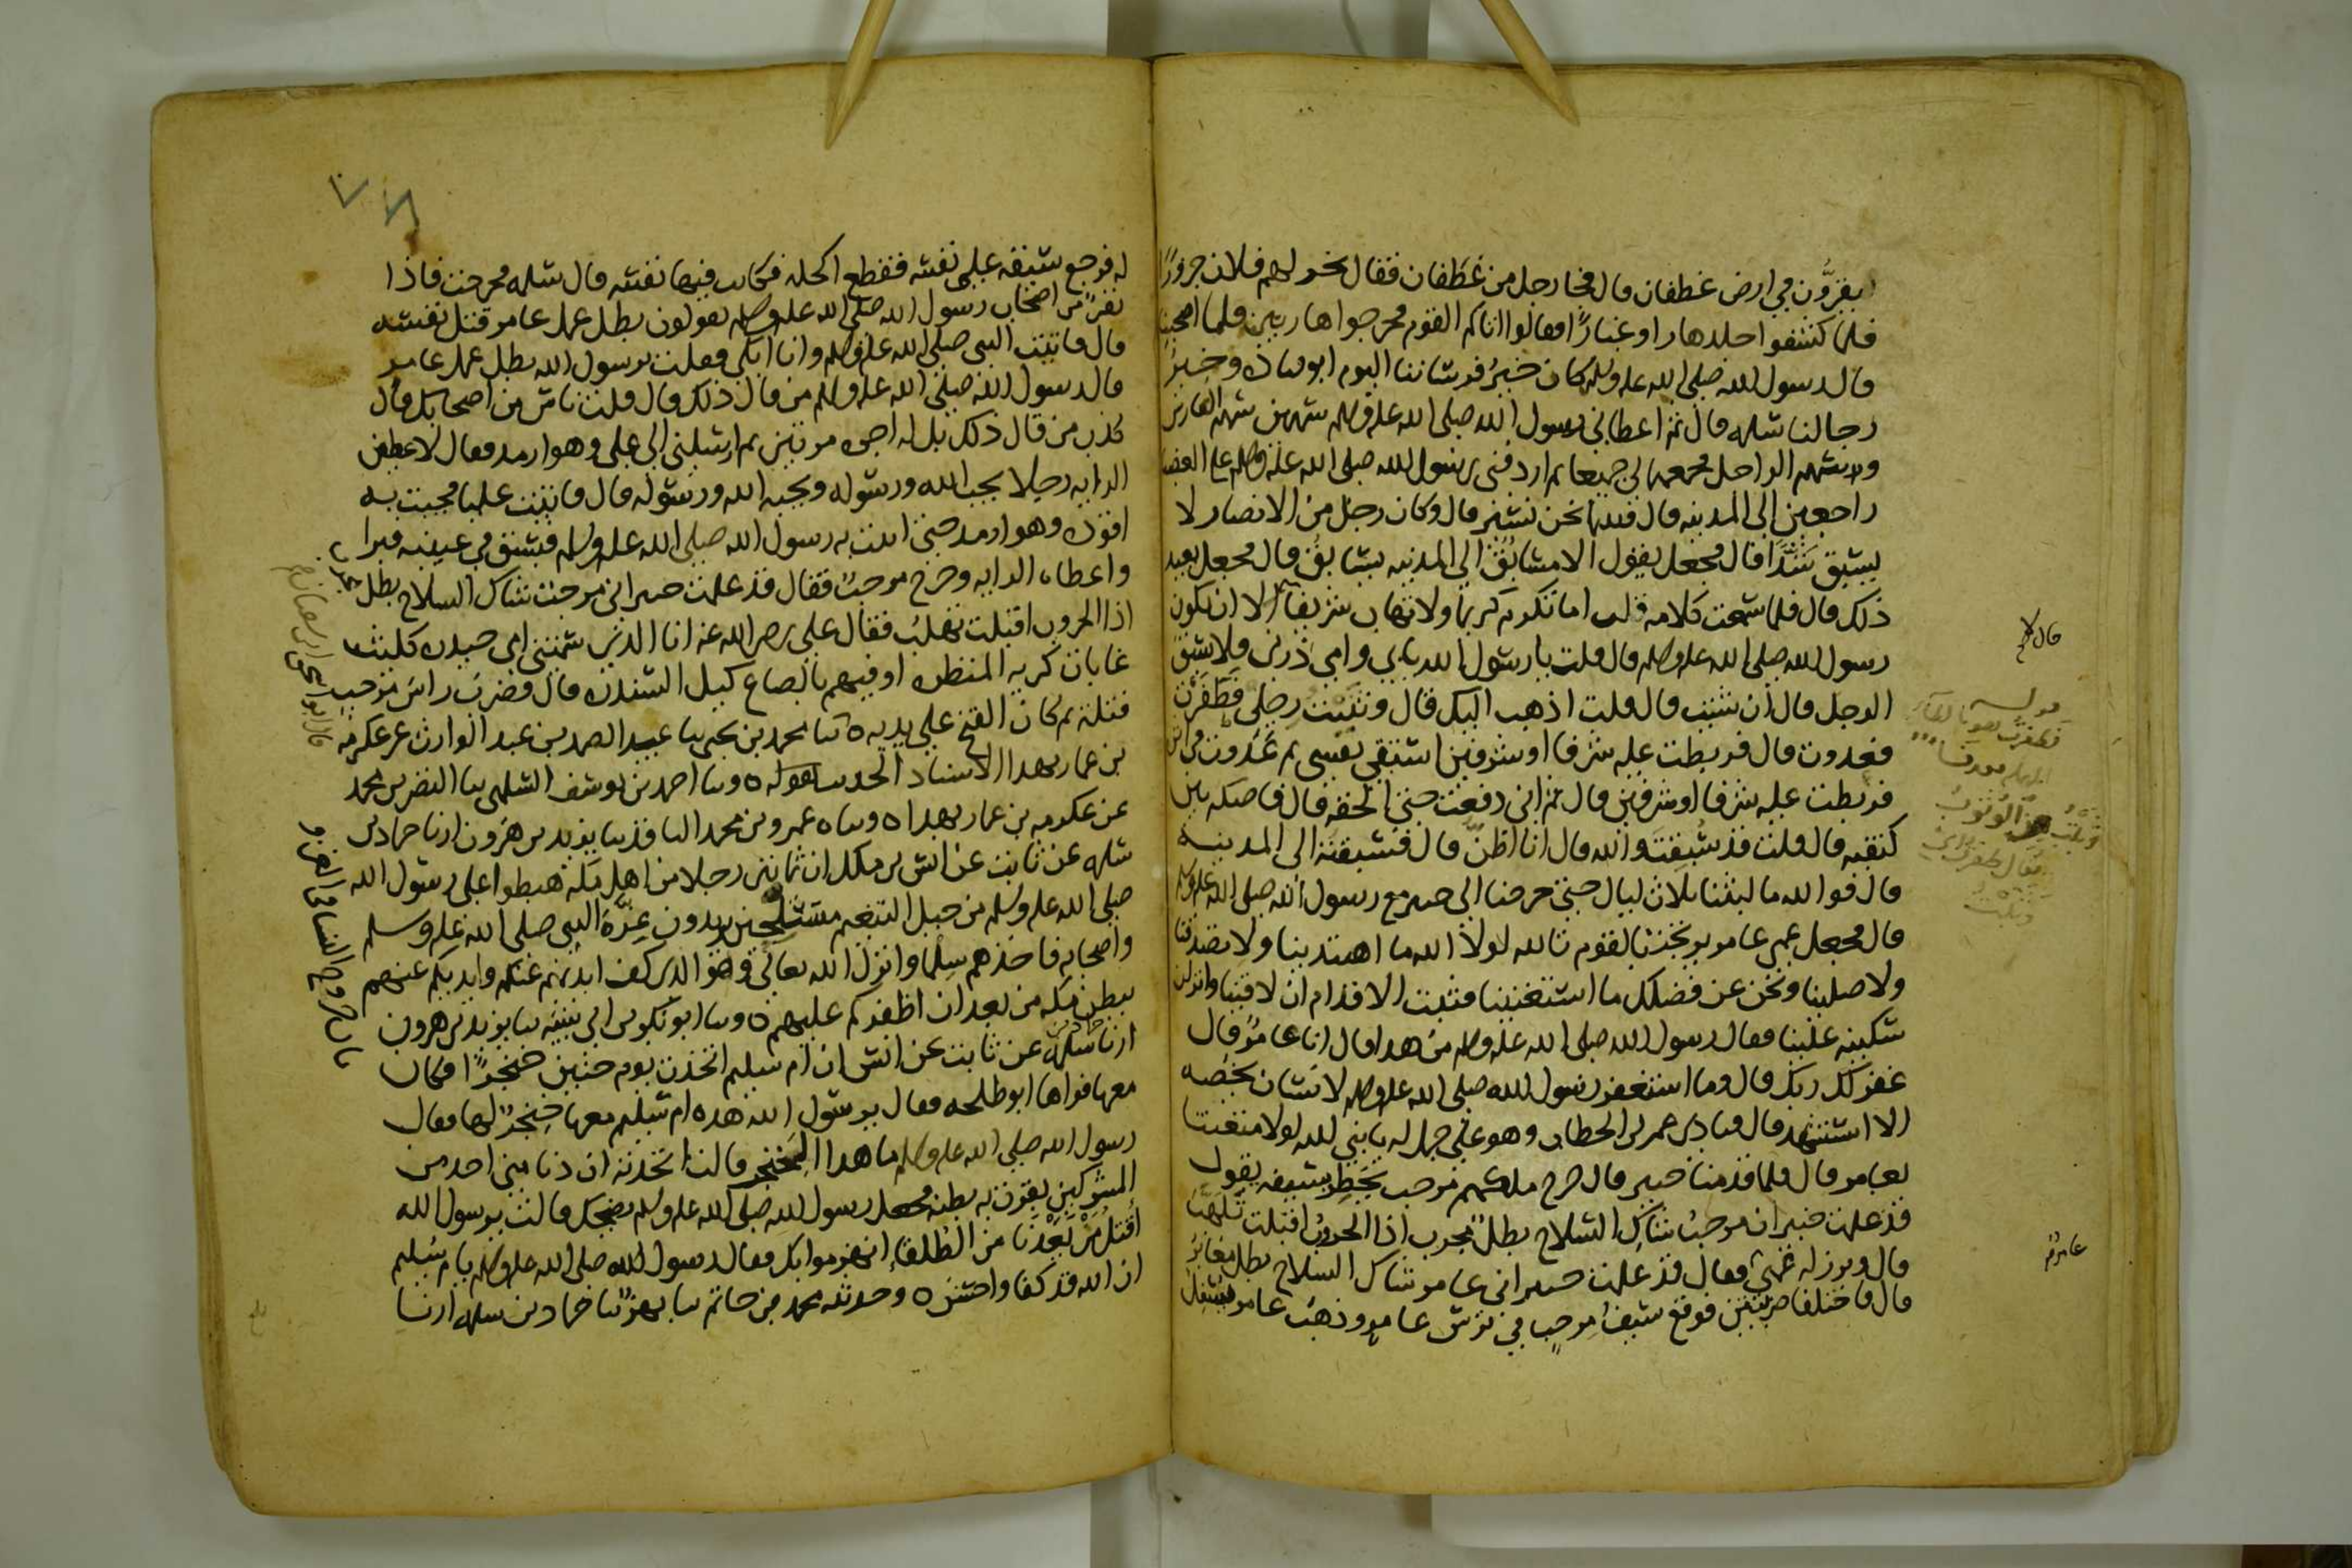 ليقرون في ارض غطفان قال فجا رجل من غطفان فقال نحر لهم فلان جزورًا
فلما كشفوا جلدها راوا غبارًا فقالوا اتاكم القوم فخرجوا هاربين فلما اصبحنا
قال رسول الله صلى الله عليه وسلم كان خيرُ فرساننا اليوم ابو قتاده وخيرُ
رجالتنا سلمه قال ثم اعطاني رسول الله صلى الله عليه وسلم سهمين سهم الفارس
وسهم الراجل فجمعهما لي جميعا ثم اردفني رسول الله صلى الله عليه وسلم على العضبا
راجعين الى المدينه قال فبينما نحن نسير قال وكان رجل من الانصار لا
يسبق شدًّا قال فجعل يقول الا مسابق الى المدينه هل مسابق قال فجعل يعيد
ذلك قال فلما سمعت كلامه قلت اما تكرم كريما ولا تهاب شريفا قال لا الا ان يكون
رسول الله صلى الله عليه وسلم قال قلت يا رسول الله بابي وامي ذرني فلاسبق
الرجل قال ان شئت قال قلت اذهب اليك قال وثنيت رجلي فطفرت
فعدوت قال فربطت عليه شرفا او شرفين استبقي نفسي ثم عدوت في اثره
فربطت عليه شرفا او شرفين قال ثم اني رفعت حتى الحقه قال فاصكه بين
كتفيه قال قلت قد سُبِقتَ والله قال انا اظن قال فسبقته الى المدينه
قال فوالله ما لبثنا ثلاث ليال حتى خرجنا الى خيبر مع رسول الله صلى الله عليه وسلم
قال فجعل عمي عامر يرتجز بالقوم تالله لولا الله ما اهتدينا ولا تصدقنا
ولا صلينا ونحن عن فضلك ما استغنينا فثبت الاقدام ان لاقينا وانزلن
سكينه علينا فقال رسول الله صلى الله عليه وسلم من هذا قال انا عامرٌ قال
غفر لك ربك قال وما استغفر رسول الله صلى الله عليه وسلم لانسان يخصه
الا استشهد قال فنادى عمر بن الخطاب وهو على جمل له يا نبي الله لولا متعتنا
بعامر قال فلما قدمنا خيبر قال خرج ملكهم مرحب يخطر بسيفه يقول
قد علمت خيبر اني مرحبُ شاكِ السلاح بطلٌ مجرب اذا الحروبُ اقبلت تلهّب
قال وبرز له عمي فقال قد علمت خيبر اني عامر شاك السلاح بطل مغامرُ
قال فاختلفا ضربتين فوقع سيفُ مرحبٍ في ترس عامر وذهب عامر يسفل
عامرٌ
له فرجع سيفه على نفسه فقطع اكحله فكانت فيها نفسه قال سلمه فخرجت فاذا
نفرٌ من اصحاب رسول الله صلى الله عليه وسلم يقولون بطل عمل عامر قتل نفسه
قال فاتيت النبي صلى الله عليه وسلم وانا ابكي فقلت يرسول الله بطل عمل عامر
قال رسول الله صلى الله عليه وسلم من قال ذلك قال قلت ناس من اصحابك قال
كذب من قال ذلك بل له اجره مرتين ثم ارسلني الى علي وهو ارمد فقال لاعطين
الرايه رجلا يحب الله ورسوله ويحبه الله ورسوله قال فاتيت عليا فجيت به
اقوده وهو ارمد حتى اتيت به رسول الله صلى الله عليه وسلم فبسق في عينيه فبرا
واعطاه الرايه وخرج مرحبٌ فقال قد علمت خيبر اني مرحب شاك السلاح بطل مجرب
اذا الحروب اقبلت تهلبُ فقال علي رضي الله عنه انا الذي سمتني امي حيدره كليث
غابات كريه المنظره اوفيهم بالصاع كيل السندره قال فضرب راس مرحب
فقتله ثم كان الفتح على يديه ه ثنا محمد بن يحيى ثنا عبد الصمد بن عبد الوارث عن عكرمه
بن عمار بهذا الاسناد الحديث بطوله ه وثنا احمد بن يوسف السلمي ثنا النضر بن محمد
عن عكرمه بن عمار بهذا ه وثناه عمرو بن محمد الناقد ثنا يزيد بن هرون ارنا حماد بن
سلمه عن ثابت عن انس بن ملك ان ثمانين رجلا من اهل مكه هبطوا على رسول الله
صلى الله عليه وسلم من جبل التنعيم متسلحين يريدون غِرّة النبي صلى الله عليه وسلم
واصحابه فاخذهم سِلما وانزل الله تعالى وهو الذي كف ايديهم عنكم وايديكم عنهم
ببطن مكه من بعد ان اظفركم عليهم ه وثنا ابو بكر بن ابي شيبه ثنا يزيد بن هرون
ارنا حماد بن سلمه عن ثابت عن انس ان ام سليم اتخذت يوم حنين خنجرًا فكان
معها فراها ابو طلحه فقال يرسول الله هذه ام سليم معها خنجرٌ لها فقال
رسول الله صلى الله عليه وسلم ما هذا الخنجر قالت اتخذته ان دنا مني احد من
المشركين بقرت به بطنه فجعل رسول الله صلى الله عليه وسلم يضحك قالت يرسول الله
اقتل مَنْ بَعْدَنا من الطلقاءِ انهزموا بك فقال رسول الله صلى الله عليه وسلم يا ام سليم
ان الله قد كفا واحسن ه وحدثنيه محمد بن حاتم ثنا بهزٌ ثنا حماد بن سلمه ارنا
باب خروج النساء في الغزو